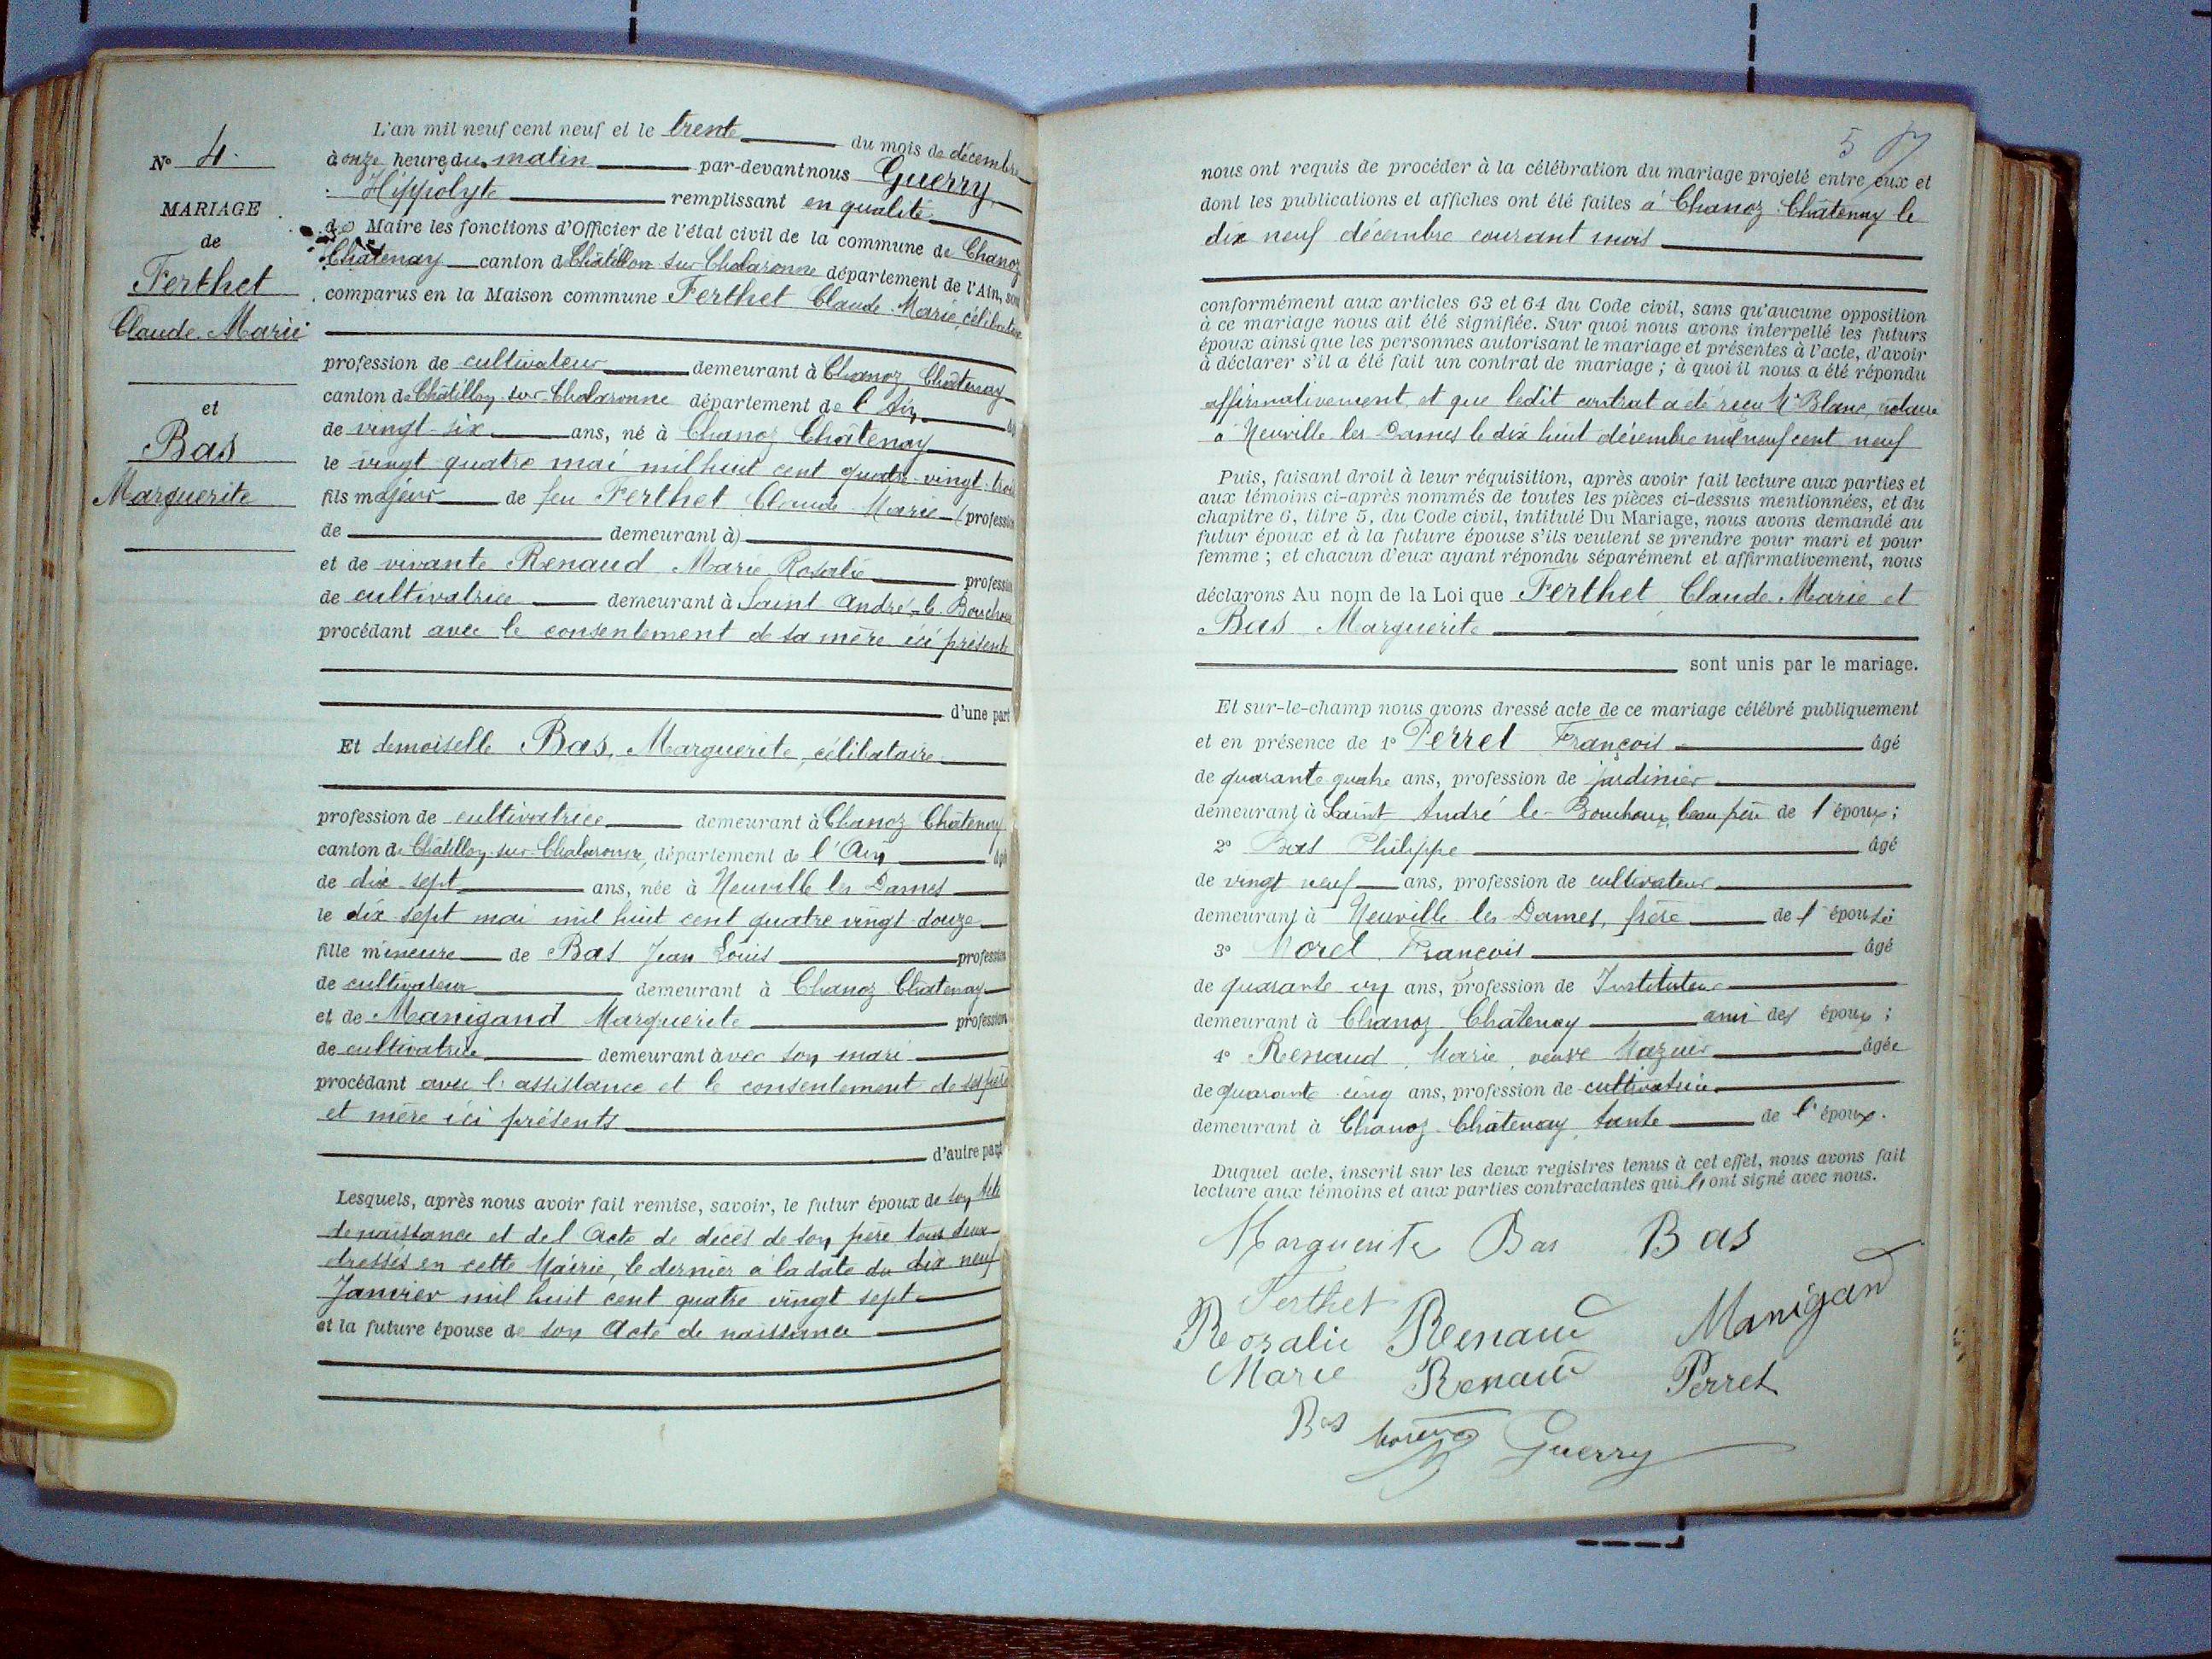 L'an mil neuf cent neuf et le trente du mois de décembre
N° 4. à onze heure du matin par-devant nous Guerry
Hippolyte remplissant en qualité
MARIAGE
de Maire les fonctions d'Officier de l'état civil de la commune de Chanoz
de
Châtenay canton de Châtillon sur Chalaronne département de l'Ain, sont
Ferthet
comparus en la Maison commune Ferthet Claude Marie, célibataire
Claude Marie
profession de cultivateur demeurant à Chanoz Châtenay
canton de Châtillon sur Chalaronne département de l'Ain
et
de vingt-six ans, né à Chanoz Châtenay
Bas
le vingt quatre mai mil huit cent quatre-vingt-trois
Marguerite
fils majeur de feu Ferthet Claude Marie (profession
de demeurant à)
et de vivante Renaud Marie Rosalie profession
de cultivatrice demeurant à Saint André-le-Bouchoux
procédant avec le consentement de sa mère ici présente
d'une part
Et demoiselle Bas, Marguerite, célibataire
profession de cultivatrice demeurant à Chanoz Châtenay
canton de Châtillon-sur-Chalaronne, département de l'Ain âgée
de dix-sept ans, née à Neuville les Dames
le dix-sept mai mil huit cent quatre vingt-douze
fille mineure de Bas Jean Louis profession
de cultivateur demeurant à Chanoz Châtenay
et de Manigand Marguerite profession
de cultivatrice demeurant avec son mari
procédant avec l'assistance et le consentement de ses père
et mère ici présents
d'autre part
Lesquels, après nous avoir fait remise, savoir, le futur époux de son acte
de naissance et de l'acte de décès de son père tous deux
dressés en cette Mairie, le dernier à la date du dix-neuf
Janvier mil huit cent quatre vingt sept
et la future épouse de son acte de naissance
5
nous ont requis de procéder à la célébration du mariage projeté entre eux et
dont les publications et affiches ont été faites à Chanoz Châtenay le
dix neuf décembre courant mois
conformément aux articles 63 et 64 du Code civil, sans qu'aucune opposition
à ce mariage nous ait été signifiée. Sur quoi nous avons interpellé les futurs
époux ainsi que les personnes autorisant le mariage et présentes à l'acte, d'avoir
à déclarer s'il a été fait un contrat de mariage ; à quoi il nous a été répondu
affirmativement, et que ledit contrat a été reçu Me Blanc, notaire
à Neuville les Dames le dix huit décembre mil neuf cent neuf
Puis, faisant droit à leur réquisition, après avoir fait lecture aux parties et
aux témoins ci-après nommés de toutes les pièces ci-dessus mentionnées, et du
chapitre 6, titre 5, du Code civil, intitulé Du Mariage, nous avons demandé au
futur époux et à la future épouse s'ils veulent se prendre pour mari et pour
femme ; et chacun d'eux ayant répondu séparément et affirmativement, nous
déclarons Au nom de la Loi que Ferthet Claude Marie et
Bas Marguerite
sont unis par le mariage.
Et sur-le-champ nous avons dressé acte de ce mariage célébré publiquement
et en présence de 1° Perret François âgé
de quarante quatre ans, profession de jardinier
demeurant à Saint André le-Bouchoux, beau père de l'époux ;
2° Bas Philippe âgé
de vingt neuf ans, profession de cultivateur
demeurant à Neuville les Dames, frère de l'épouse
3° Morel François âgé
de quarante un ans, profession de Instituteur
demeurant à Chanoz Châtenay ami des époux ;
4° Renaud, Marie, veuve Mazuir âgée
de quarante cinq ans, profession de cultivatrice
demeurant à Chanoz Châtenay, tante de l'époux.
Duquel acte, inscrit sur les deux registres tenus à cet effet, nous avons fait
lecture aux témoins et aux parties contractantes qui ont signé avec nous.
Marguerite Bas Bas
Ferthet
Rozalie Renaud Manigand
Marie Renaud Perret
Bas Morel Guerry